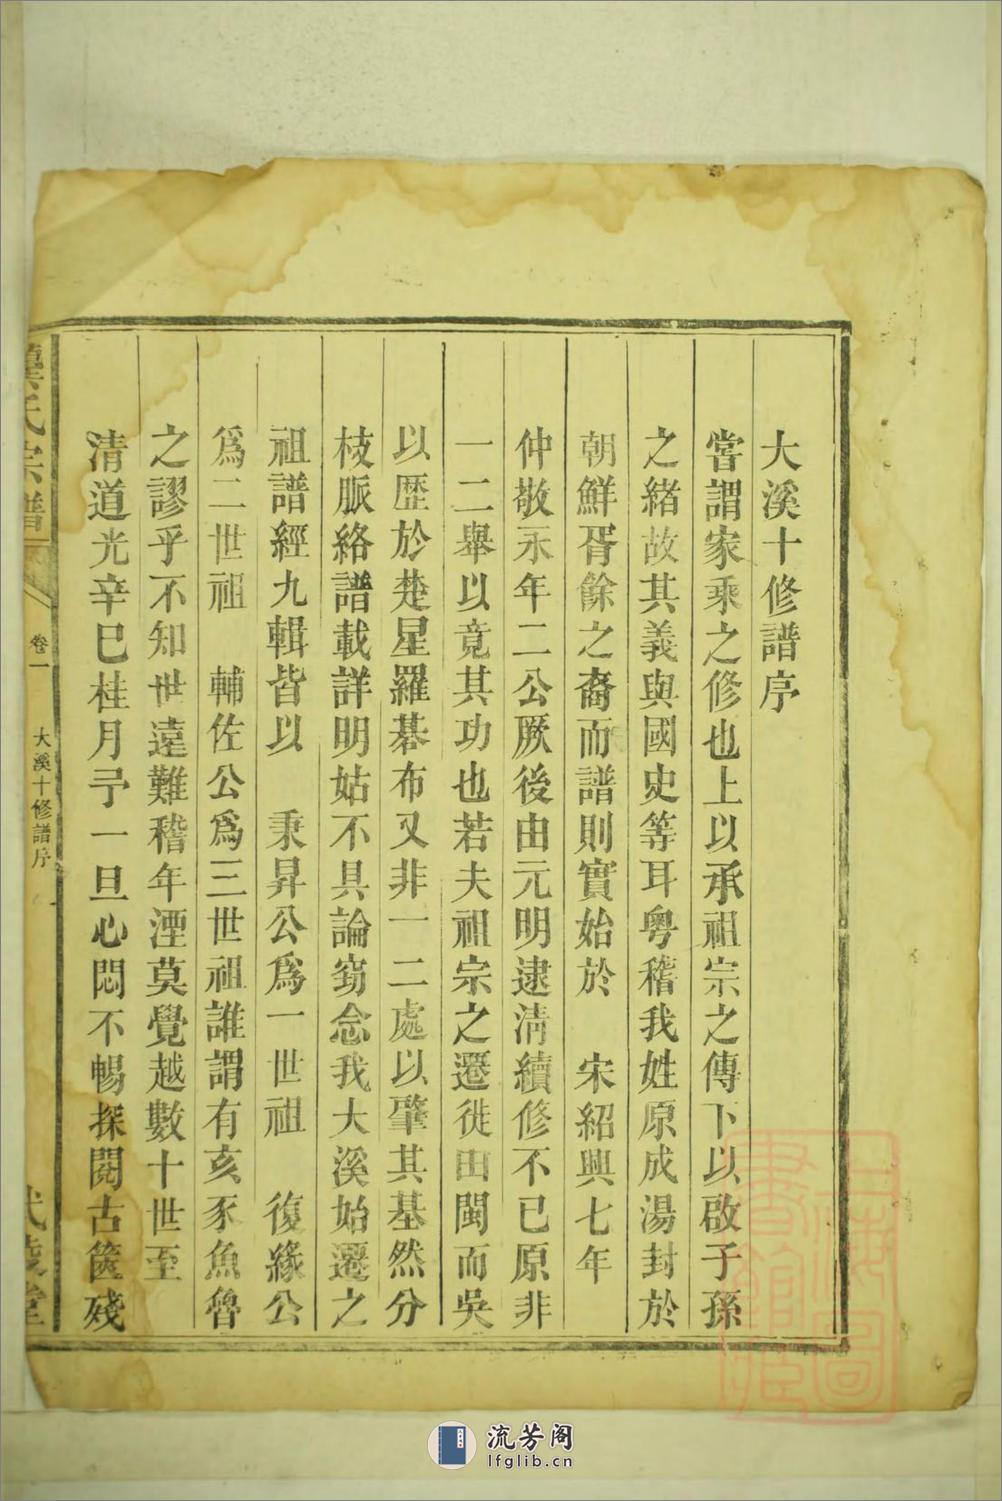 大溪十修譜序
嘗謂家乘之修也上以承祖宗之傳下以啟子孫
之緒故其義與國史等耳粵稽我姓原成湯封於
朝鮮胥餘之裔而譜則實始於 宋紹興七年
仲敬永年二公厥後由元明逮淸續修不已原非
一二舉以竟其功也若夫祖宗之遷徙由閩而吳
以歷於楚星羅碁布又非一二處以肇其基然分
枝脈絡譜載詳明姑不具論竊念我大溪始遷之
祖譜經九輯皆以 秉昇公爲一世祖 復緣公
爲二世祖 輔佐公爲三世祖誰謂有亥豕魚魯
之謬乎不知世遠難稽年湮莫覺越數十世至
清道光辛巳桂月予一旦心悶不暢探閱古篋殘
氏宗譜
卷一
大溪十修譜序
一
堂
流芳阁
lfglib.cn